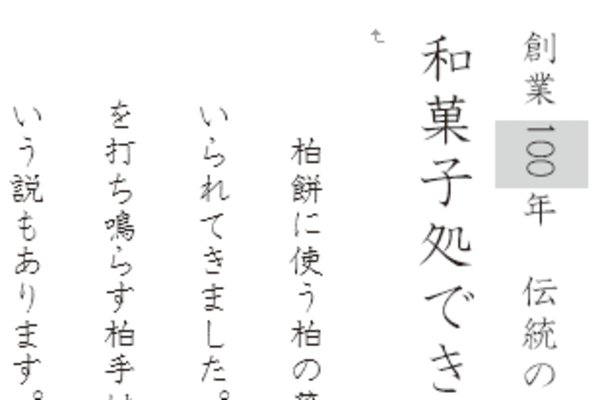 創業100年　伝統の
和菓子処でき
　柏餅に使う柏の
いられてきました。
を打ち鳴らす柏手
いう説もあります。